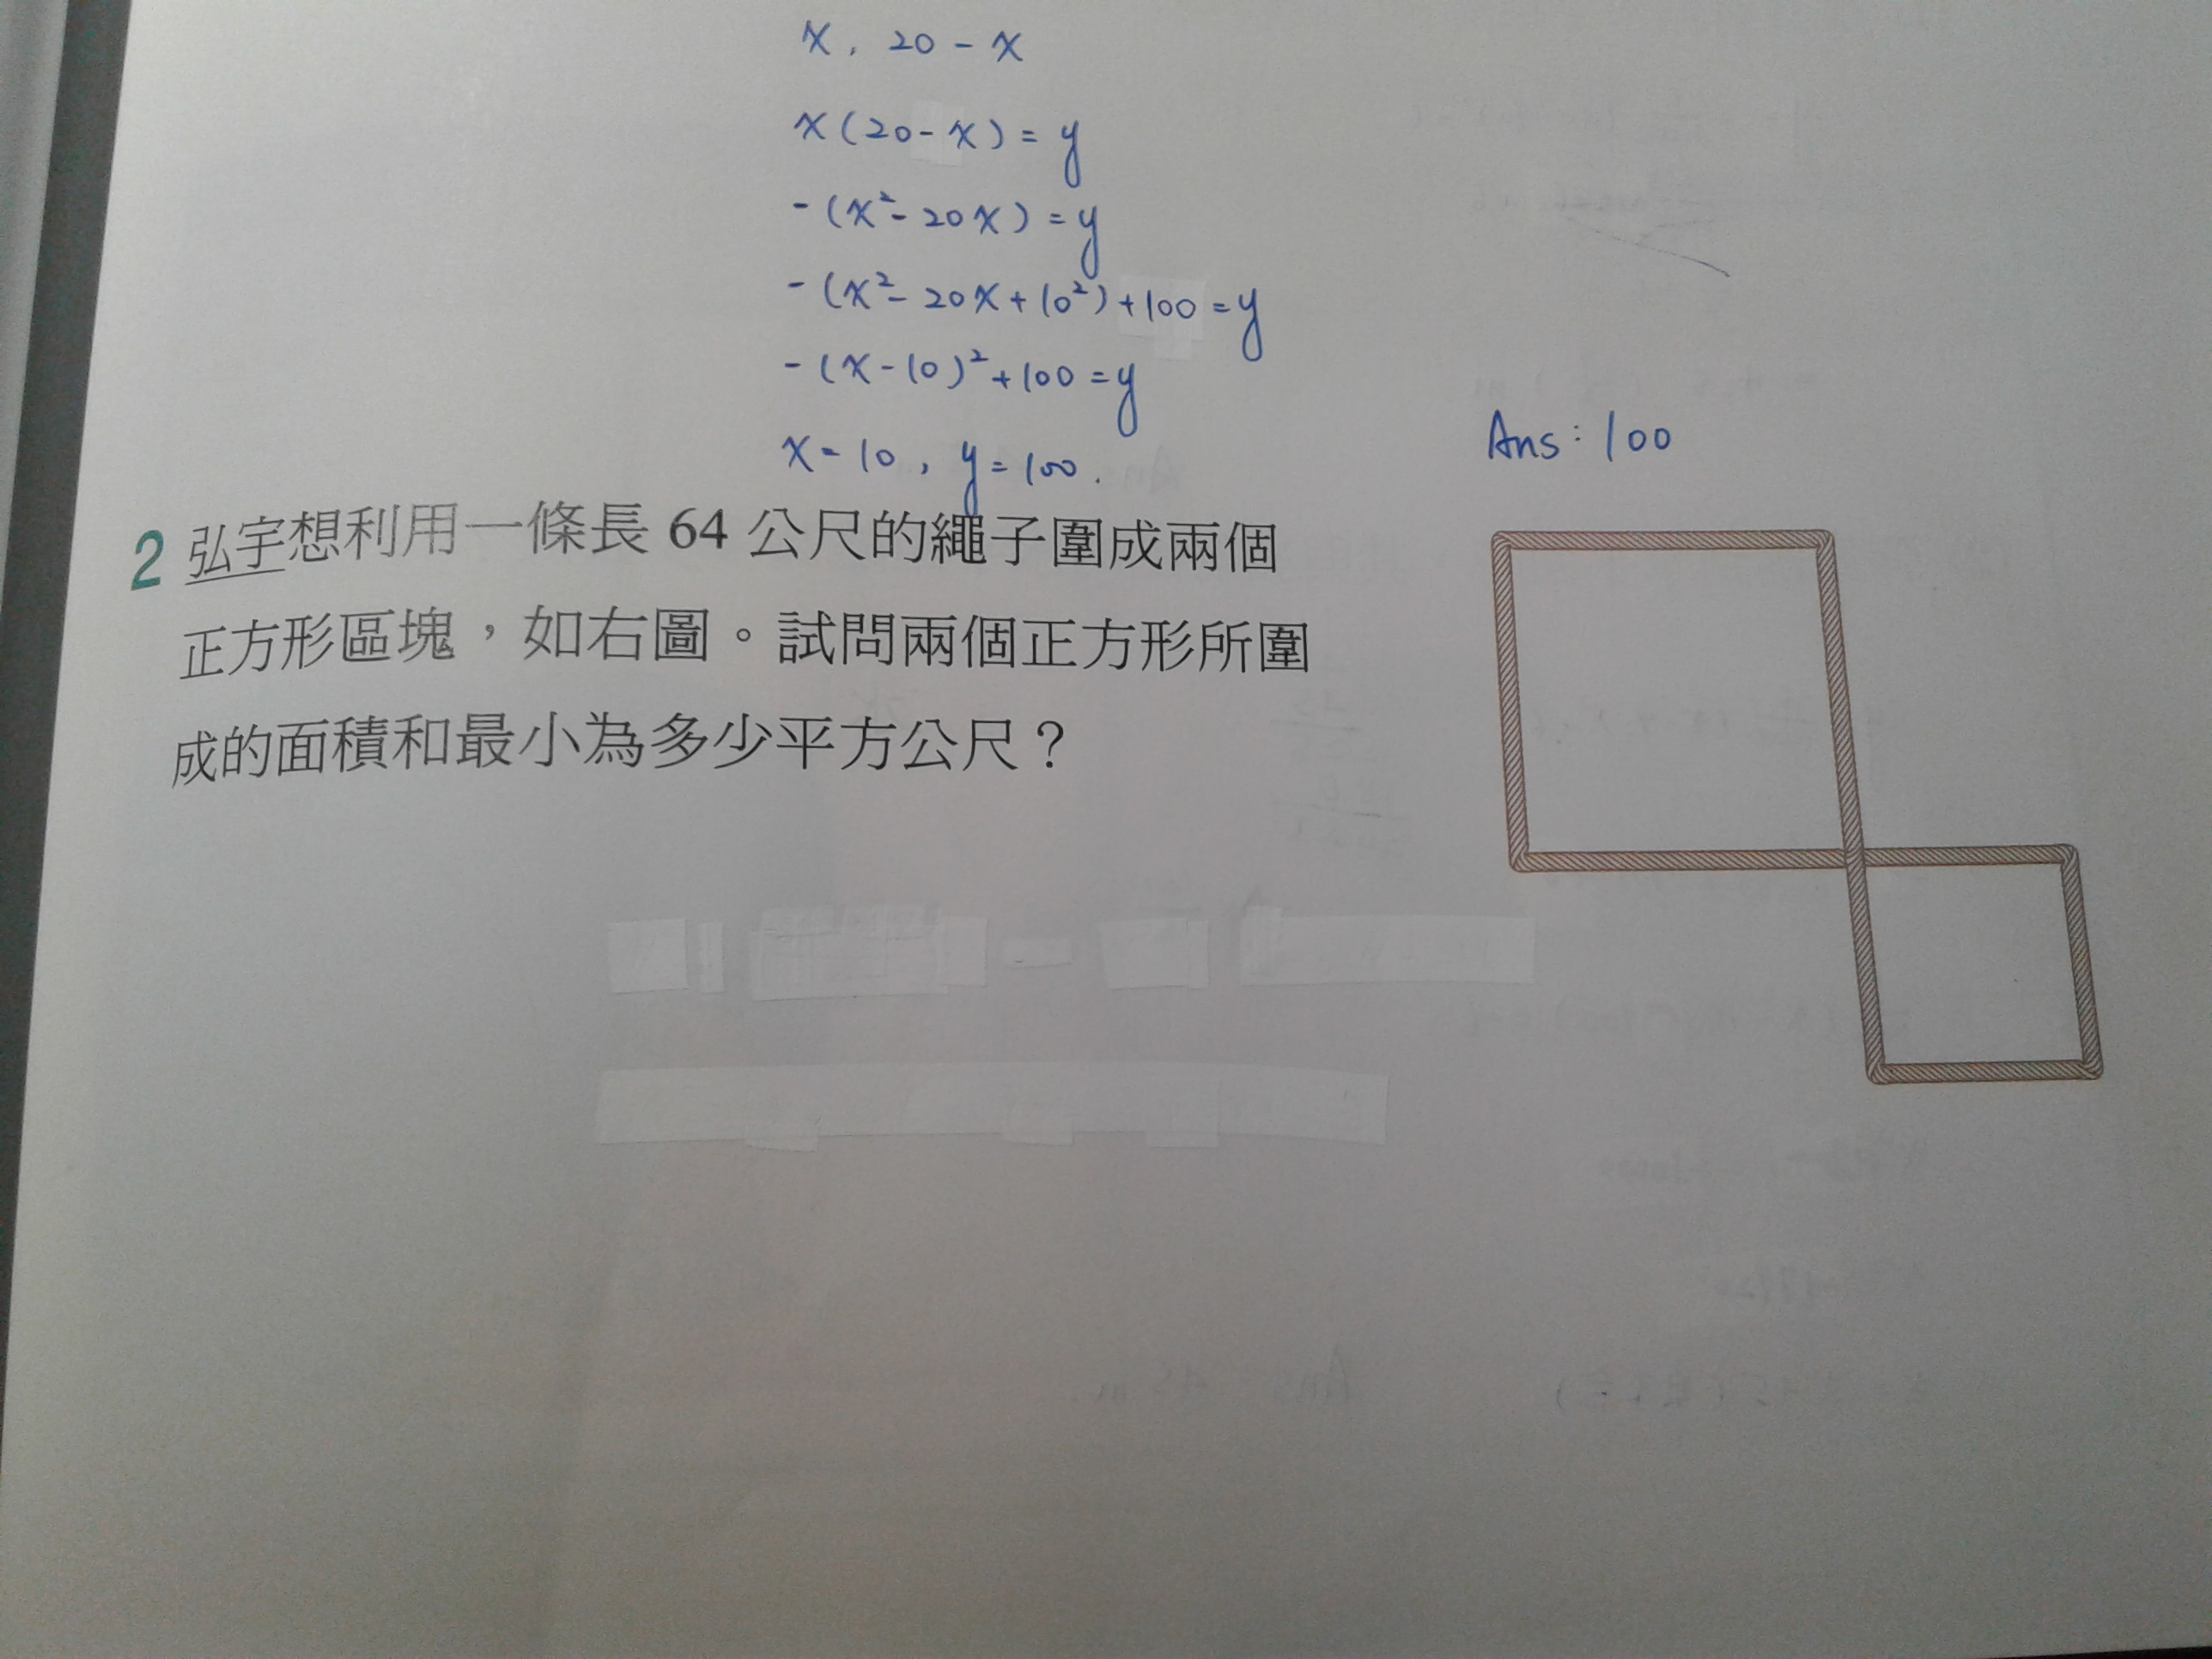 x, 20-x
x(20-x)=y
-(x²-20x)=y
-(x²-20x+10²)+100=y
-(x-10)²+100=y
x=10, y=100.
Ans: 100
2 弘宇想利用一條長 64 公尺的繩子圍成兩個
正方形區塊,如右圖。試問兩個正方形所圍
成的面積和最小為多少平方公尺?